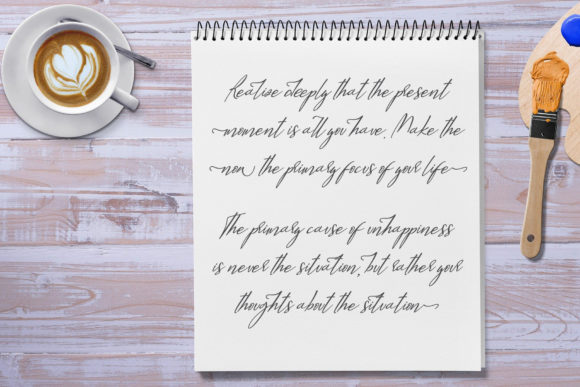 Realise deeply that the present
moment is all you have. Make the
now the primary focus of your life
The primary cause of unhappiness
is never the situation, but rather your
thoughts about the situation